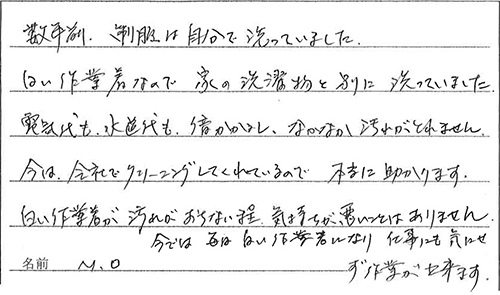 数年前、制服は自分で洗っていました。
白い作業着なので 家の洗濯物と別に 洗っていました。
電気代も、水道代も、倍かかるし、なかなか汚れがとれません。
今は、会社でクリーニングしてくれているので 本当に助かります。
白い作業着が 汚れが おちない程、気持ちが悪いことはありません。
今では 毎日 白い作業着になり 仕事にも 気にせ
ず作業が出来ます。
名前 M.O